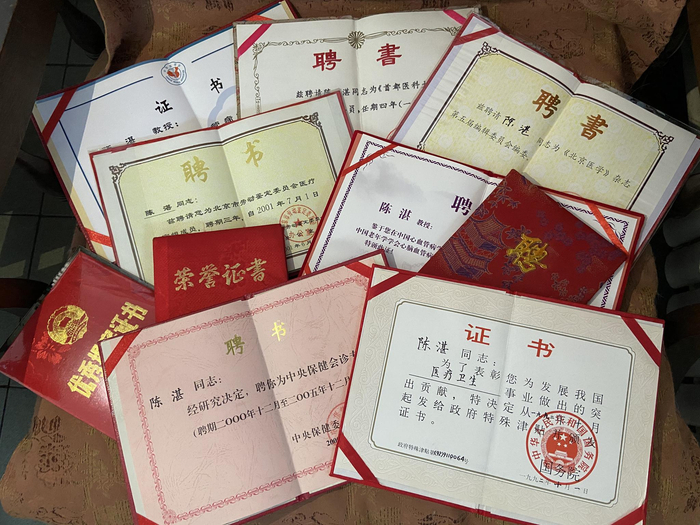 证书
教授：
聘书
兹聘请陈湛同志为《首都医科
员，任期四年（一
聘书
兹聘请陈湛同志为《北京医学》杂志
第五届编辑委员会编委
聘书
陈湛 同志：
兹聘请您为北京市劳动鉴定委员会医疗
成员，聘期三年，自2001年7月1日
聘
陈湛 教授：
鉴于您在中国心血管病
中国老年学学会心脑血管病
特颁
聘
荣誉证书
优秀
证书
聘书
陈湛 同志：
经研究决定，聘您为中央保健会诊
（聘期二〇〇〇年十二月至二〇〇五年十二月
中央保健委
证书
陈湛 同志：
为了表彰您为发展我国
医疗卫生 事业做出的突
出贡献，特决定从
月
起发给政府特殊津
证书。
政府特殊津贴第
中华人民共和国国务院
国务院